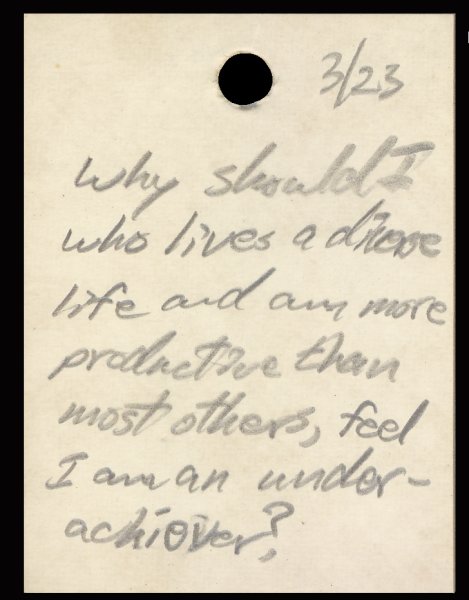 3/23
Why should I
who lives a diverse
life and am more
productive than
most others, feel
I am an under-
achiever?